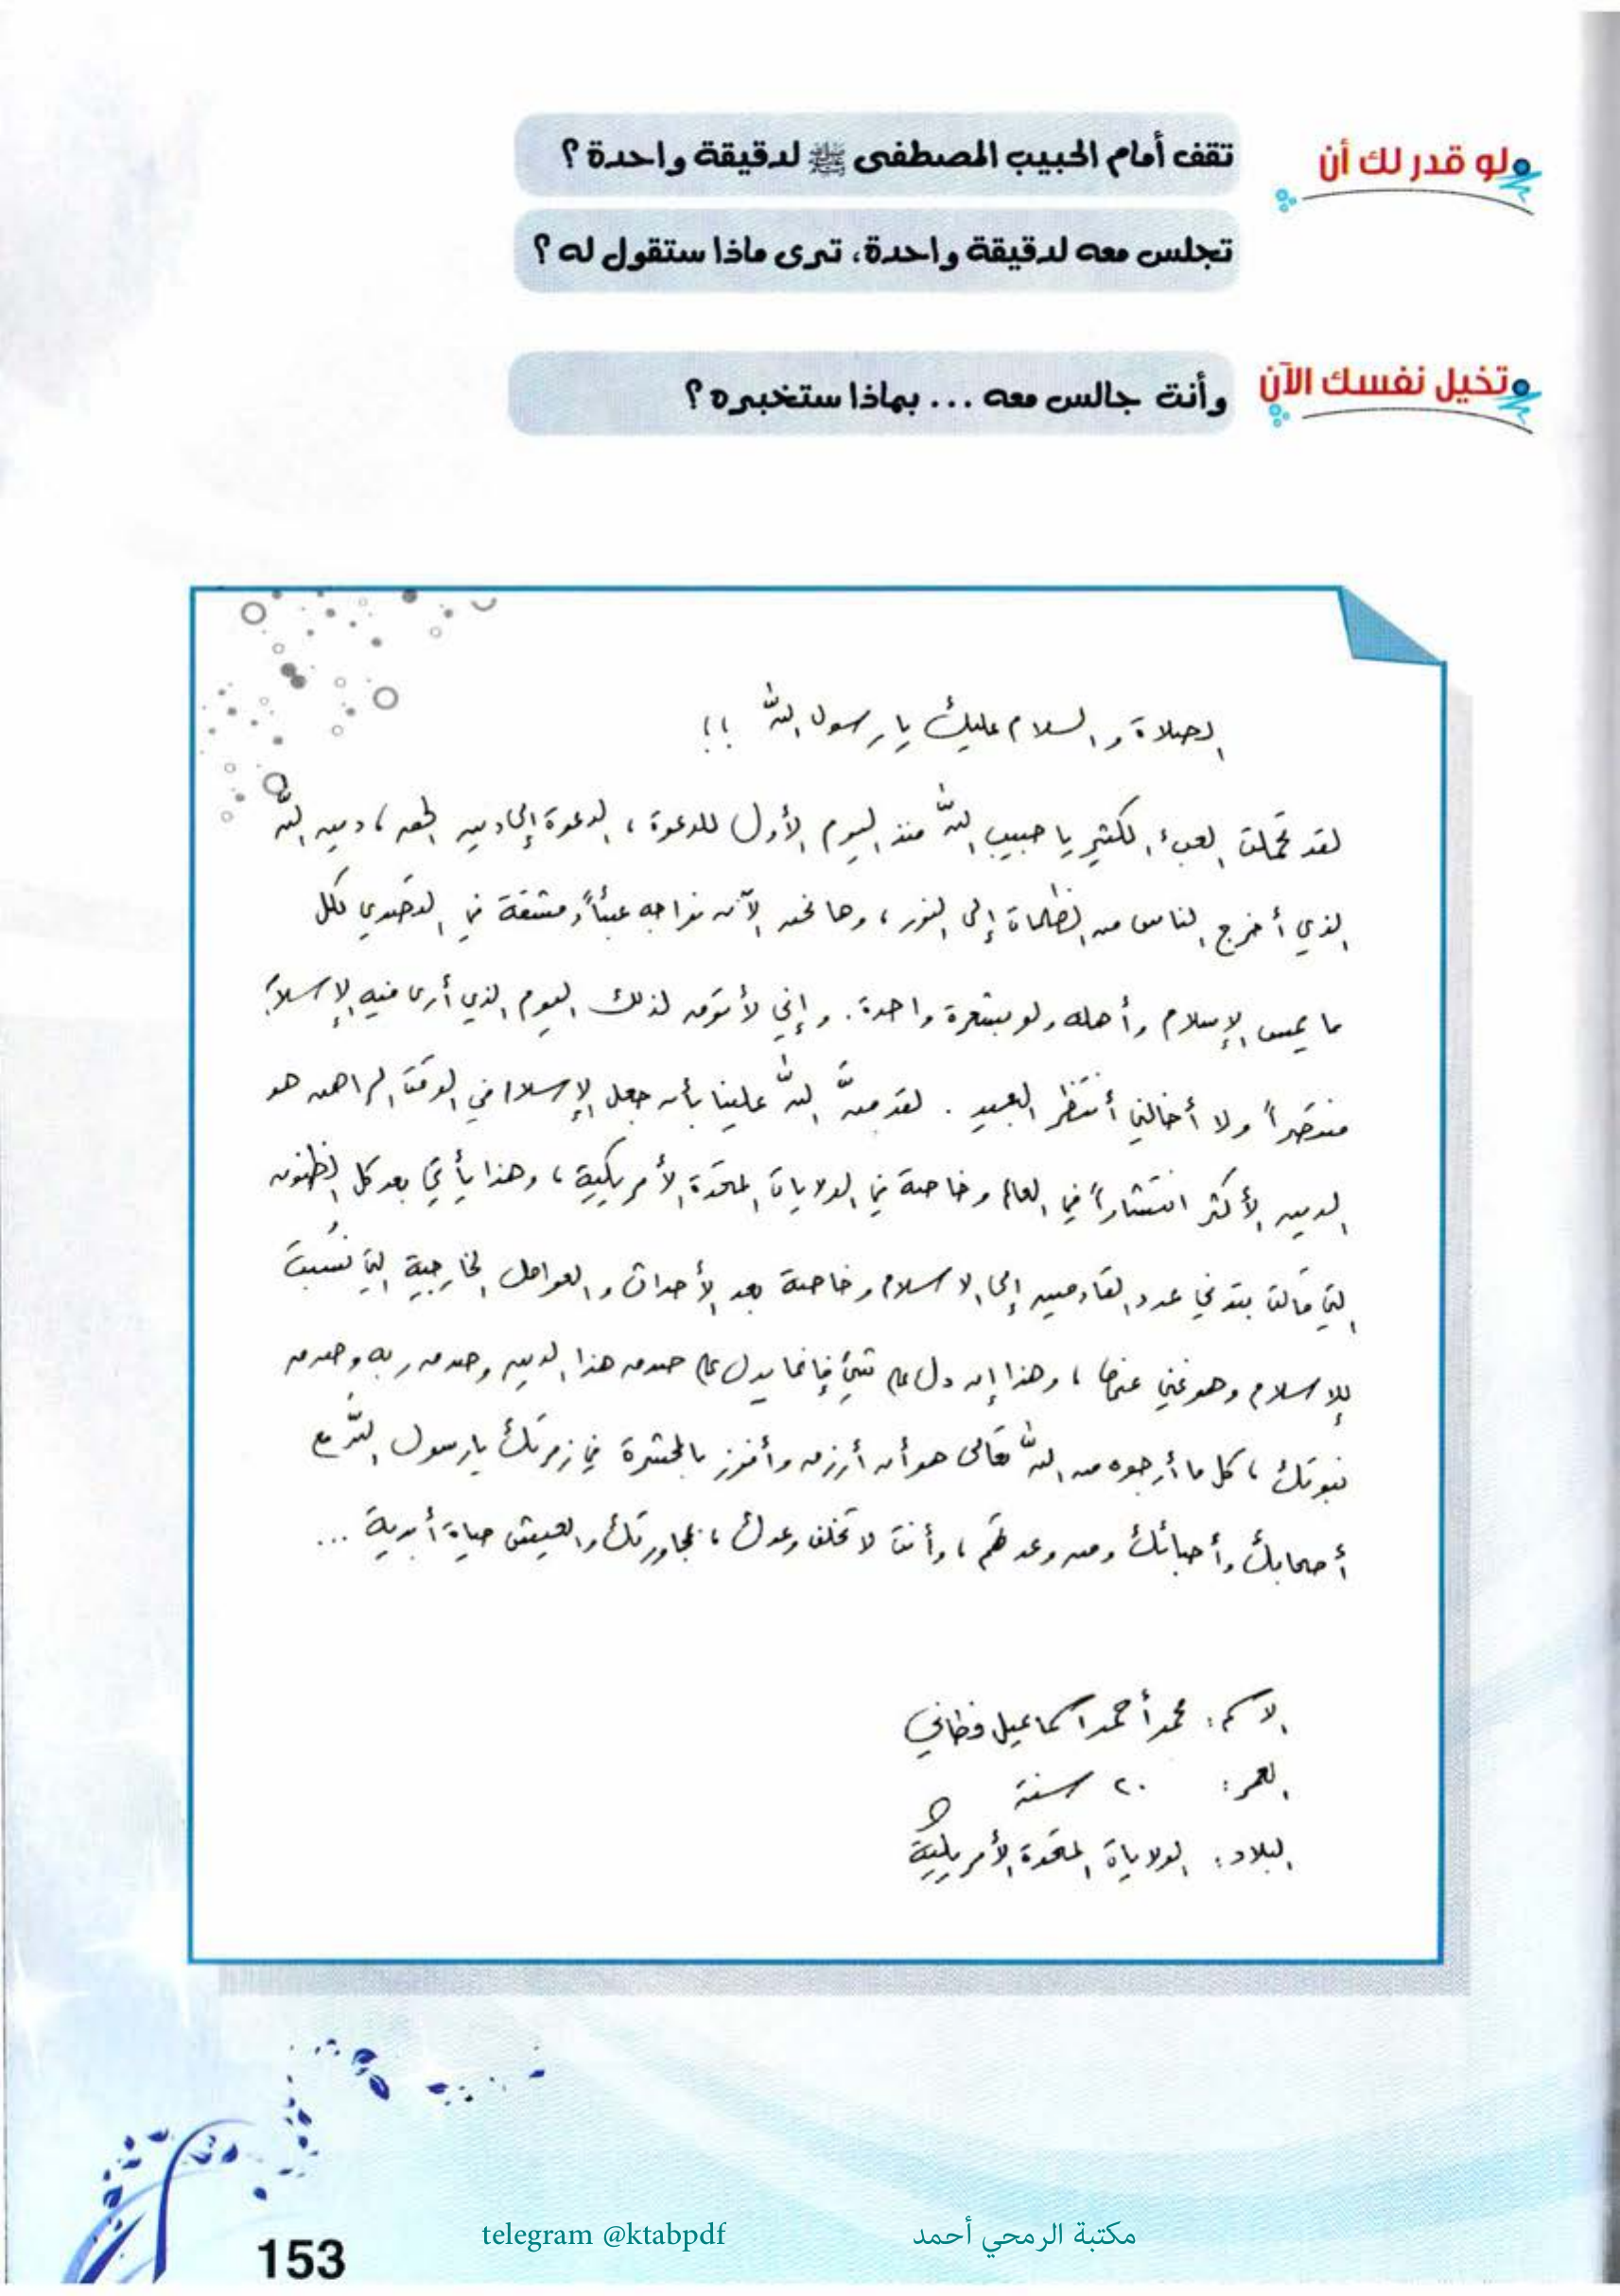 لو قدر لك أن
تقف أمام الحبيب المصطفى ﷺ لدقيقة واحدة ؟
تجلس معه لدقيقة واحدة، ترى ماذا ستقول له ؟
تخيل نفسك الآن
وأنت جالس معه ... بماذا ستخبره ؟
الصلاة والسلام عليك يا رسول الله !!
لقد تحملت العبء الكثير يا حبيب الله منذ اليوم الأول للدعوة ، الدعوة إلى دين الحق ، دين الله
الذي أخرج الناس من الظلمات إلى النور ، وها نحن الآن نواجه عبئاً ومشقة في التصدي لكل
ما يمس الإسلام وأهله ولو بشعرة واحدة . وإني لأتوق لذلك اليوم الذي أرى فيه الإسلام
منتصراً ولا أخالني أنتظر البعيد . لقد منّ الله علينا بأن جعل الإسلام في الوقت الراهن هو
الدين الأكثر انتشاراً في العالم وخاصة في الولايات المتحدة الأمريكية ، وهذا يأتي بعد كل الظنون
التي قالت بتدني عدد القادمين إلى الاسلام وخاصة بعد الأحداث والعوامل الخارجية التي نُسبت
للإسلام وهو غني عنها ، وهذا إن دل على شيئ فإنما يدل على صدق هذا الدين وصدق ربه وصدق
نبوتك ، كل ما أرجوه من الله تعالى هو أن أرزق وأفوز بالحشرة في زمرتك يا رسول الله مع
أصحابك وأحبائك ومن وعدتهم ، وأنت لا تخلف وعدك ، بمجاورتك والعيش حياة أبدية ...
الاسم : محمد أحمد اسماعيل فطاني
العمر : ٢٠ سنة
البلاد : الولايات المتحدة الأمريكية
telegram @ktabpdf
مكتبة الرمحي أحمد
153